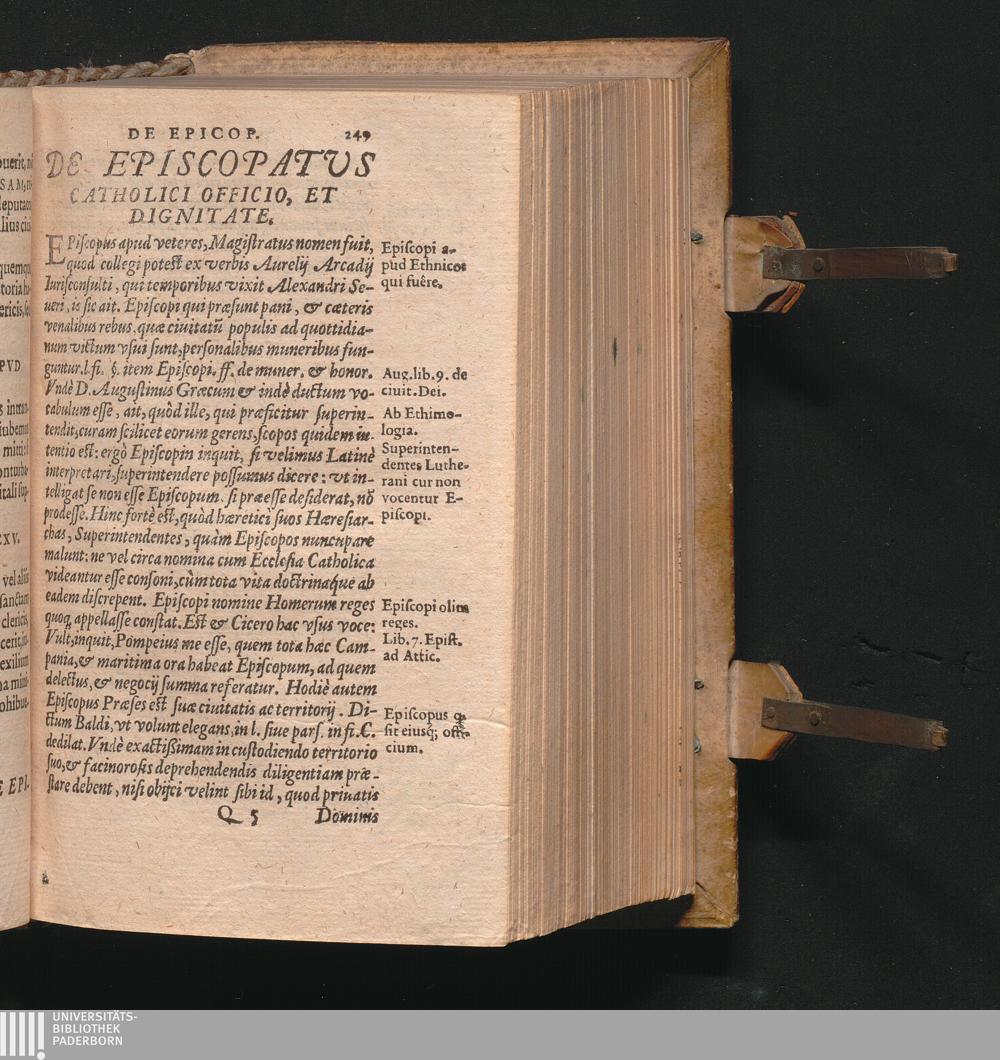 DE EPICOP. 249
DE EPISCOPATVS
CATHOLICI OFFICIO, ET
DIGNITATE.
EPiſcopus apud veteres, Magiſtratus nomen fuit,
quod collegi poteſt ex verbis Aurelij Arcadij
Iuriſconſulti, qui temporibus vixit Alexandri Se-
ueri, is ſic ait. Epiſcopi qui præſunt pani, & cæteris
venalibus rebus, quæ ciuitatũ populis ad quottidia-
num victum vſui ſunt, perſonalibus muneribus fun-
guntur. l. fi. §. item Epiſcopi. ff. de muner. & honor.
Vndè D. Auguſtinus Græcum & indè ductum vo-
cabulum eſſe, ait, quòd ille, qui præficitur ſuperin-
tendit, curam ſcilicet eorum gerens, ſcopos quidem in-
tentio eſt: ergò Epiſcopin inquit, ſi velimus Latinè
interpretari, ſuperintendere poſſumus dicere: vt in-
telligat ſe non eſſe Epiſcopum, ſi præeſſe deſiderat, nõ
prodeſſe. Hinc fortè eſt, quòd hæretici ſuos Hæreſiar-
chas, Superintendentes, quàm Epiſcopos nuncupare
malunt: ne vel circa nomina cum Eccleſia Catholica
videantur eſſe conſoni, cùm tota vita doctrinaque ab
eadem diſcrepent. Epiſcopi nomine Homerum reges
quoq; appellaſſe conſtat. Eſt & Cicero hac vſus voce:
Vult, inquit, Pompeius me eſſe, quem tota hæc Cam-
pania, & maritima ora habeat Epiſcopum, ad quem
delectus, & negocij ſumma referatur. Hodiè autem
Epiſcopus Præſes eſt ſuæ ciuitatis ac territorij. Di-
ctum Baldi, vt volunt elegans, in l. ſiue parſ. in fi. C.
dedilat. Vndè exactiſſimam in cuſtodiendo territorio
ſuo, & facinoroſis deprehendendis diligentiam præ-
ſtare debent, niſi obijci velint ſibi id, quod priuatis
Q 5 Dominis
Epiſcopi a-
pud Ethnicos
qui fuêre.
Aug. lib. 9. de
ciuit. Dei.
Ab Ethimo-
logia.
Superinten-
dentes Luthe-
rani cur non
vocentur E-
piſcopi.
Epiſcopi olim
reges.
Lib. 7. Epiſt.
ad Attic.
Epiſcopus q
ſit eiusq; offi-
cium.
PVD
XV.
E EPI-
UNIVERSITÄTS-
BIBLIOTHEK
PADERBORN